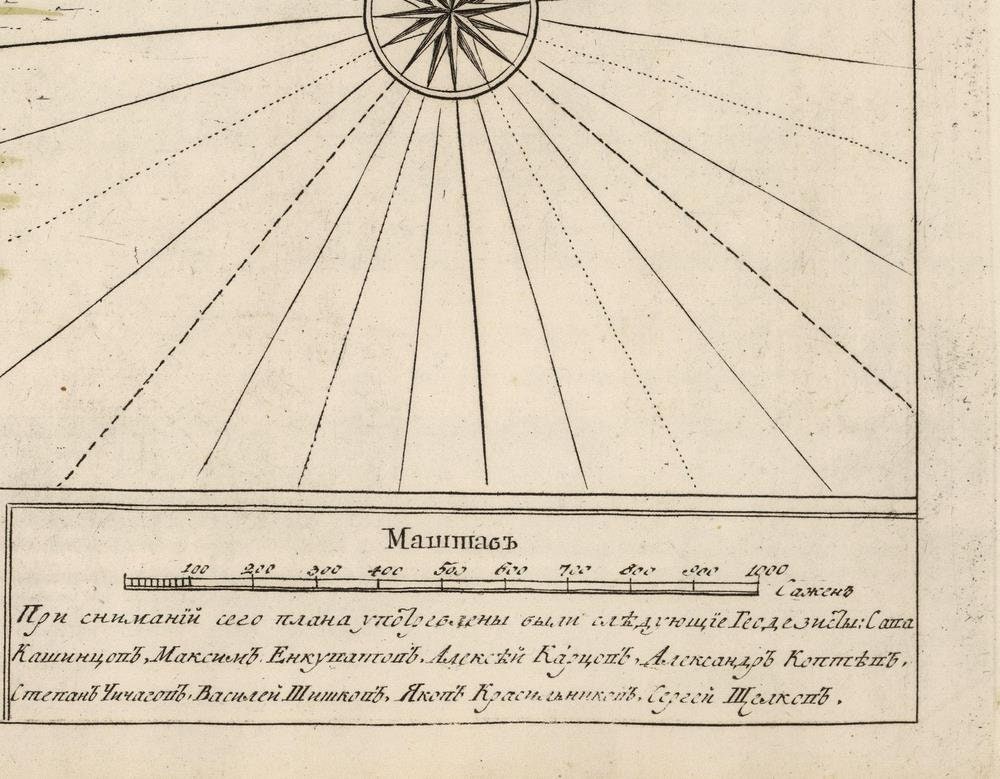 Маштавъ
100 200 300 400 500 600 700 800 900 1000
Сажень
При сниманїй сего плана употреблены были слѣдующїе Геодезисты: Сава
Кашинцовъ, Максимъ Енкуватовъ, Алексѣй Карцовъ, Александръ Коптѣвъ,
Степанъ Чичаговъ, Василей Шишковъ, Яковъ Красильниковъ, Сергей Щелковъ.